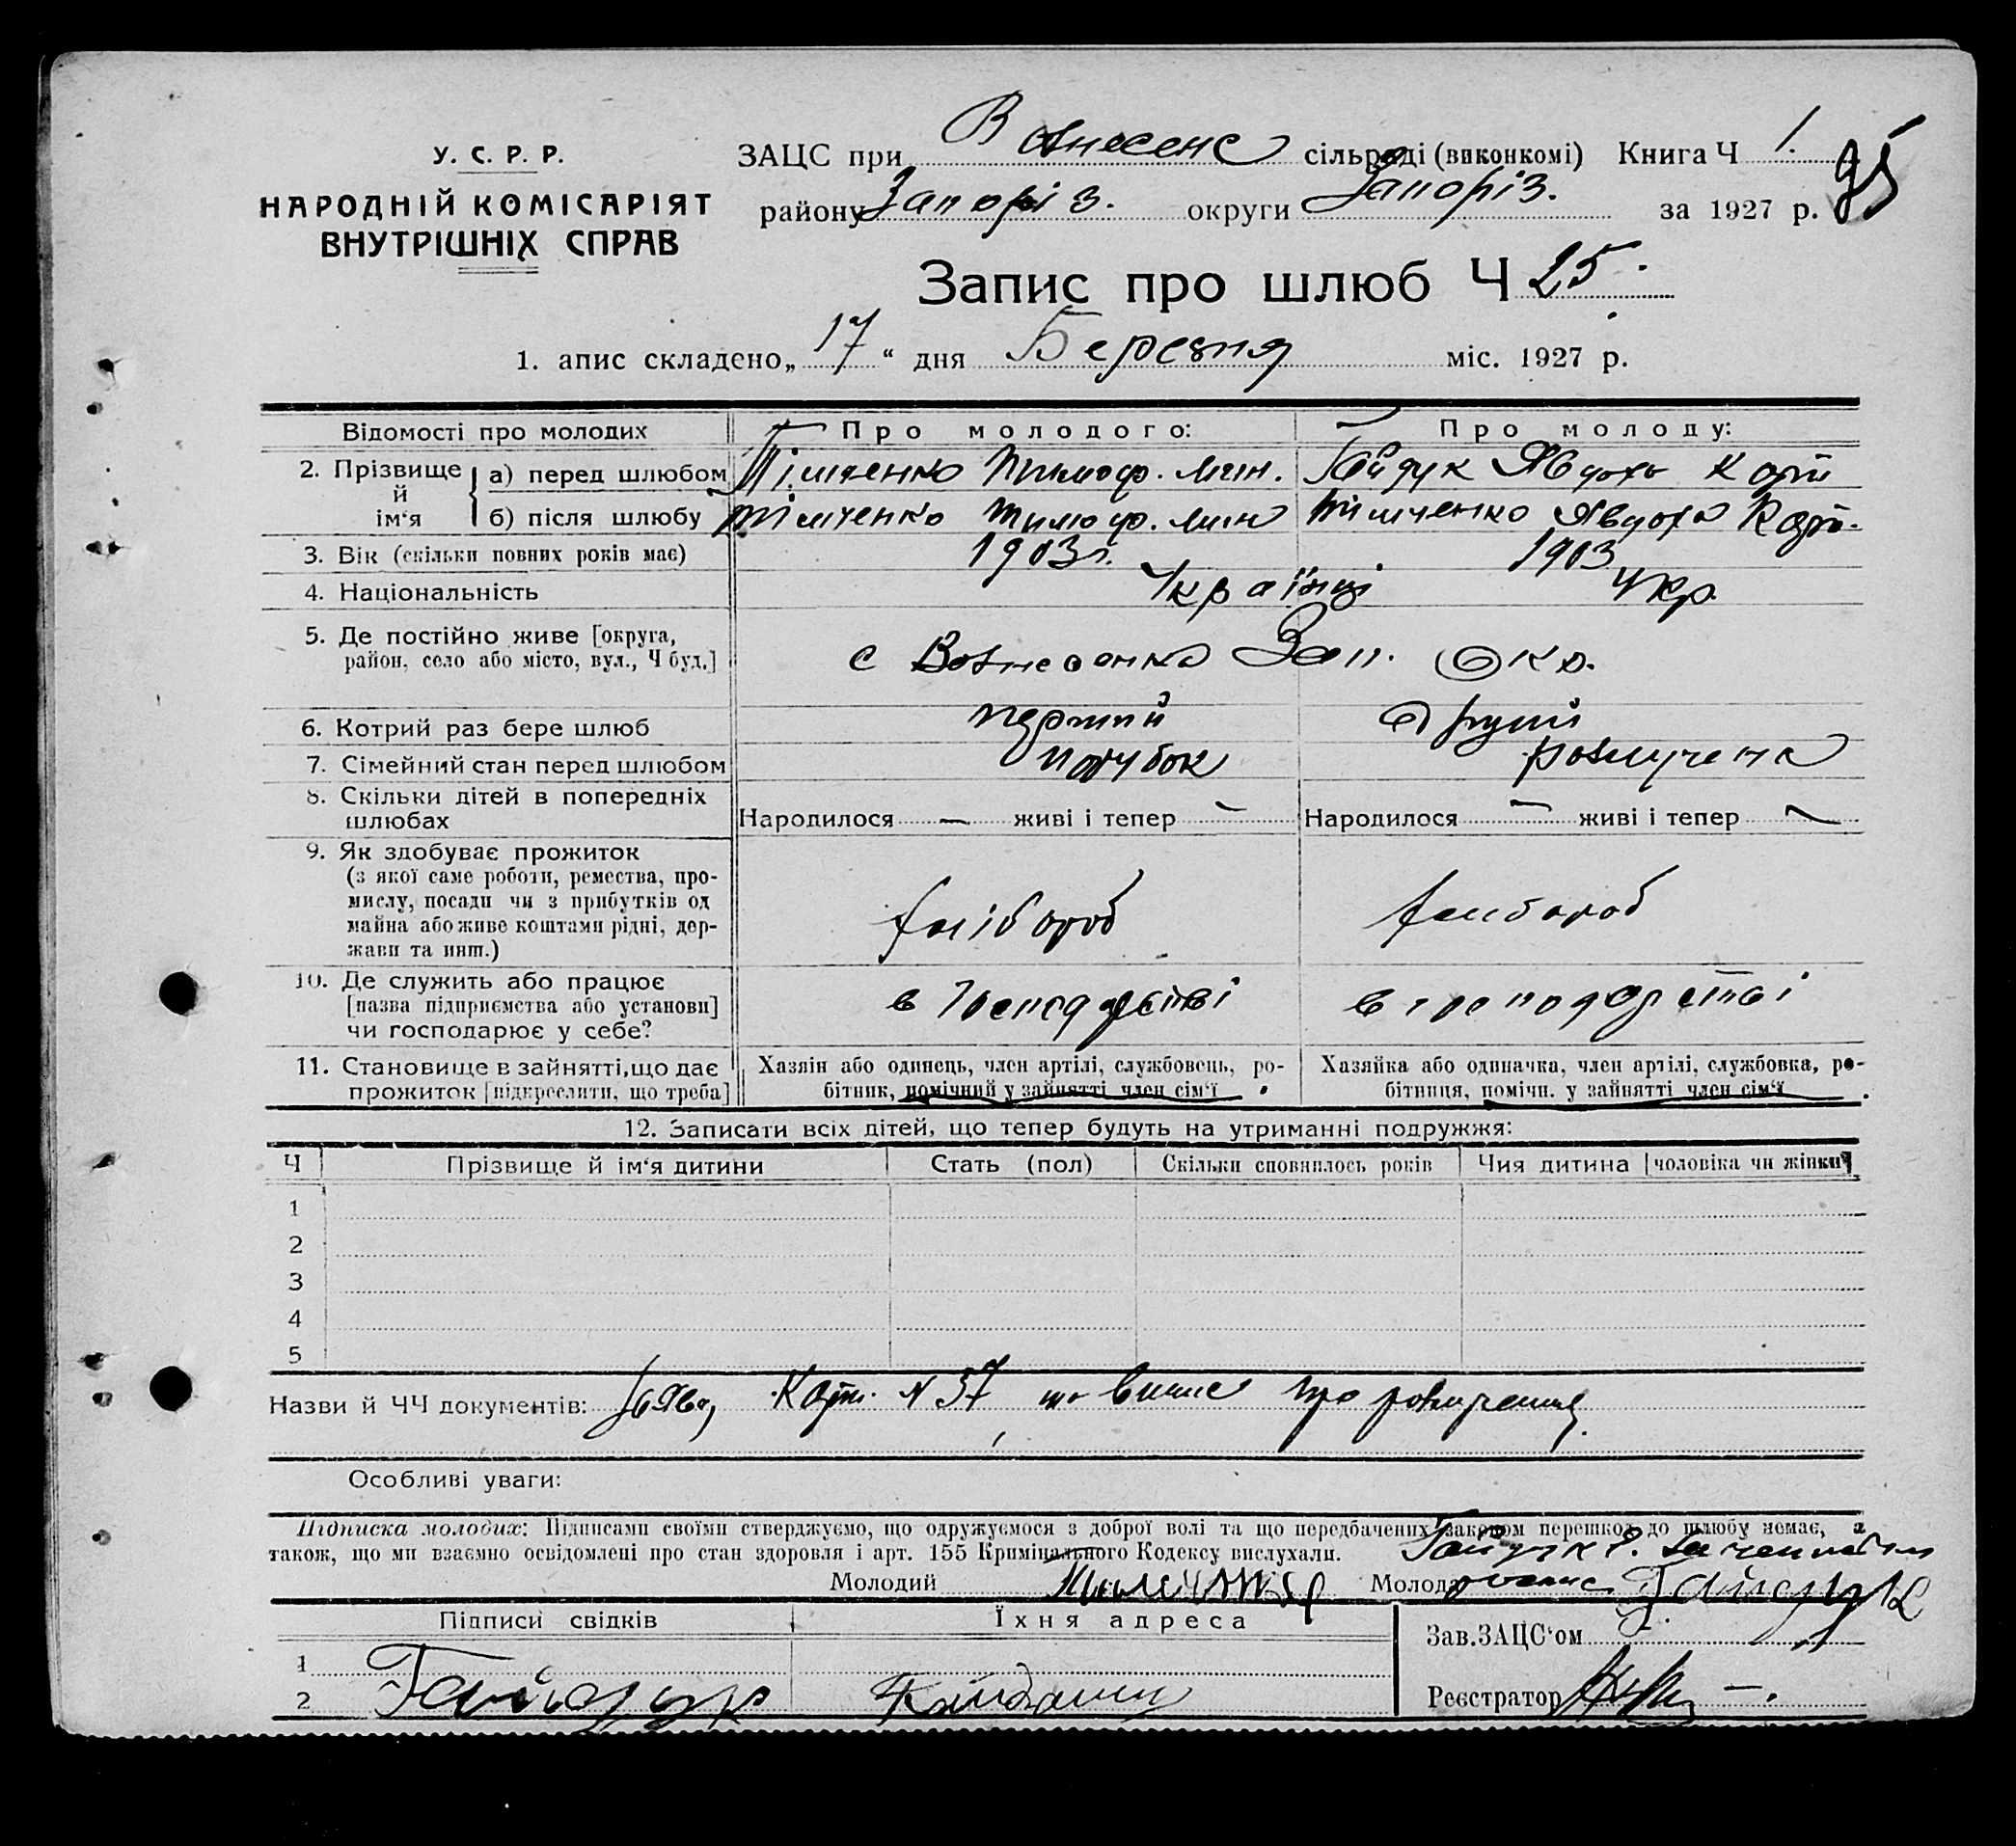 У. С. Р. Р.
НАРОДНІЙ КОМІСАРІЯТ
ВНУТРІШНІХ СПРАВ
ЗАЦС при Вознесенс сільраді (виконкомі) Книга Ч 1. 95
району Запоріз. округи Запоріз. за 1927 р.
Запис про шлюб Ч 25.
1. апис складено „17“ дня Березня міс. 1927 р.
Відомості про молодих Про молодого: Про молоду:
2. Прізвище й ім‘я
а) перед шлюбом Тімченко Тимоф. Мин. Гайдук Явдоха
б) після шлюбу Тімченко Тимоф. Мин Тімченко Явдоха
3. Вік (скільки повних років має) 1903 г. 1903
4. Національність Українці Укр.
5. Де постійно живе [округа, район, село або місто, вул., Ч буд.] с Вознесенка Зап. Окр.
6. Котрий раз бере шлюб перший другий
7. Сімейний стан перед шлюбом парубок розлучена
8. Скільки дітей в попередніх шлюбах Народилося — живі і тепер — Народилося — живі і тепер —
9. Як здобуває прожиток
(з якої саме роботи, ремества, про-
мислу, посади чи з прибутків од
майна або живе коштами рідні, дер-
жави та инш.) хлібороб хлібороб
10. Де служить або працює
[назва підприємства або установи]
чи господарює у себе? в господарстві в господарстві
11. Становище в зайнятті, що дає
прожиток [підкреслити, що треба]
Хазяїн або одинець, член артілі, службовець, ро-
бітник, помічний у зайнятті член сім‘ї
Хазяйка або одиначка, член артілі, службовка, ро-
бітниця, помічн. у зайнятті член сім‘ї
12. Записати всіх дітей, що тепер будуть на утриманні подружжя:
Ч Прізвище й ім‘я дитини Стать (пол) Скільки сповнилось років Чия дитина [чоловіка чи жінки]
1
2
3
4
5
Назви й ЧЧ документів: Заява, Карт. N 37, про розлучення
Особливі уваги:
Підписка молодих: Підписами своїми стверджуємо, що одружуємося з доброї волі та що передбачених законом перешкод до шлюбу немає, а
також, що ми взаємно освідомлені про стан здоровля і арт. 155 Кримінального Кодексу вислухали.
Молодий Молода Гайдук
Підписи свідків Їхня адреса
Зав. ЗАЦС‘ом
1
2 Гайдук
Реєстратор